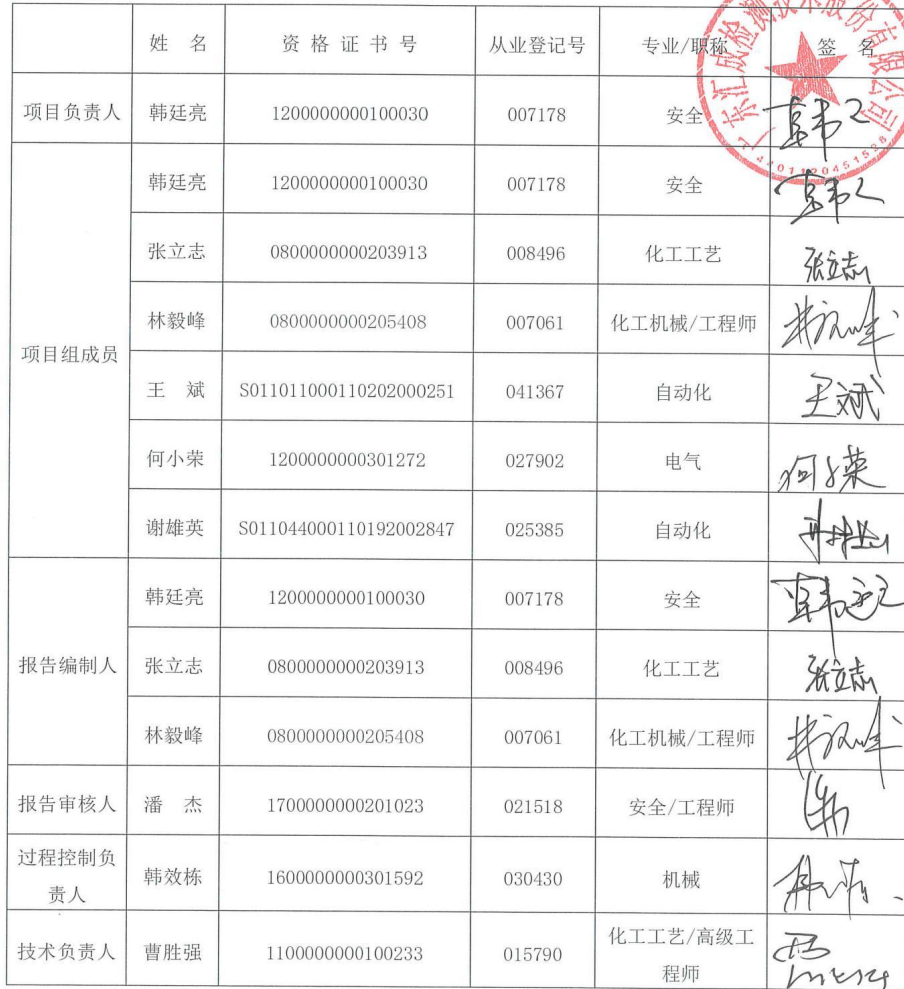 姓 名 资 格 证 书 号 从业登记号 专业/职称 签 名
项目负责人 韩廷亮 1200000000100030 007178 安全
项目组成员 韩廷亮 1200000000100030 007178 安全
张立志 0800000000203913 008496 化工工艺 张立志
林毅峰 0800000000205408 007061 化工机械/工程师
王 斌 S011011000110202000251 041367 自动化 王斌
何小荣 1200000000301272 027902 电气 何小荣
谢雄英 S011044000110192002847 025385 自动化
报告编制人 韩廷亮 1200000000100030 007178 安全
张立志 0800000000203913 008496 化工工艺 张立志
林毅峰 0800000000205408 007061 化工机械/工程师
报告审核人 潘 杰 1700000000201023 021518 安全/工程师
过程控制负
责人 韩效栋 1600000000301592 030430 机械
技术负责人 曹胜强 1100000000100233 015790 化工工艺/高级工
程师
广东汇成检测技术股份有限公司